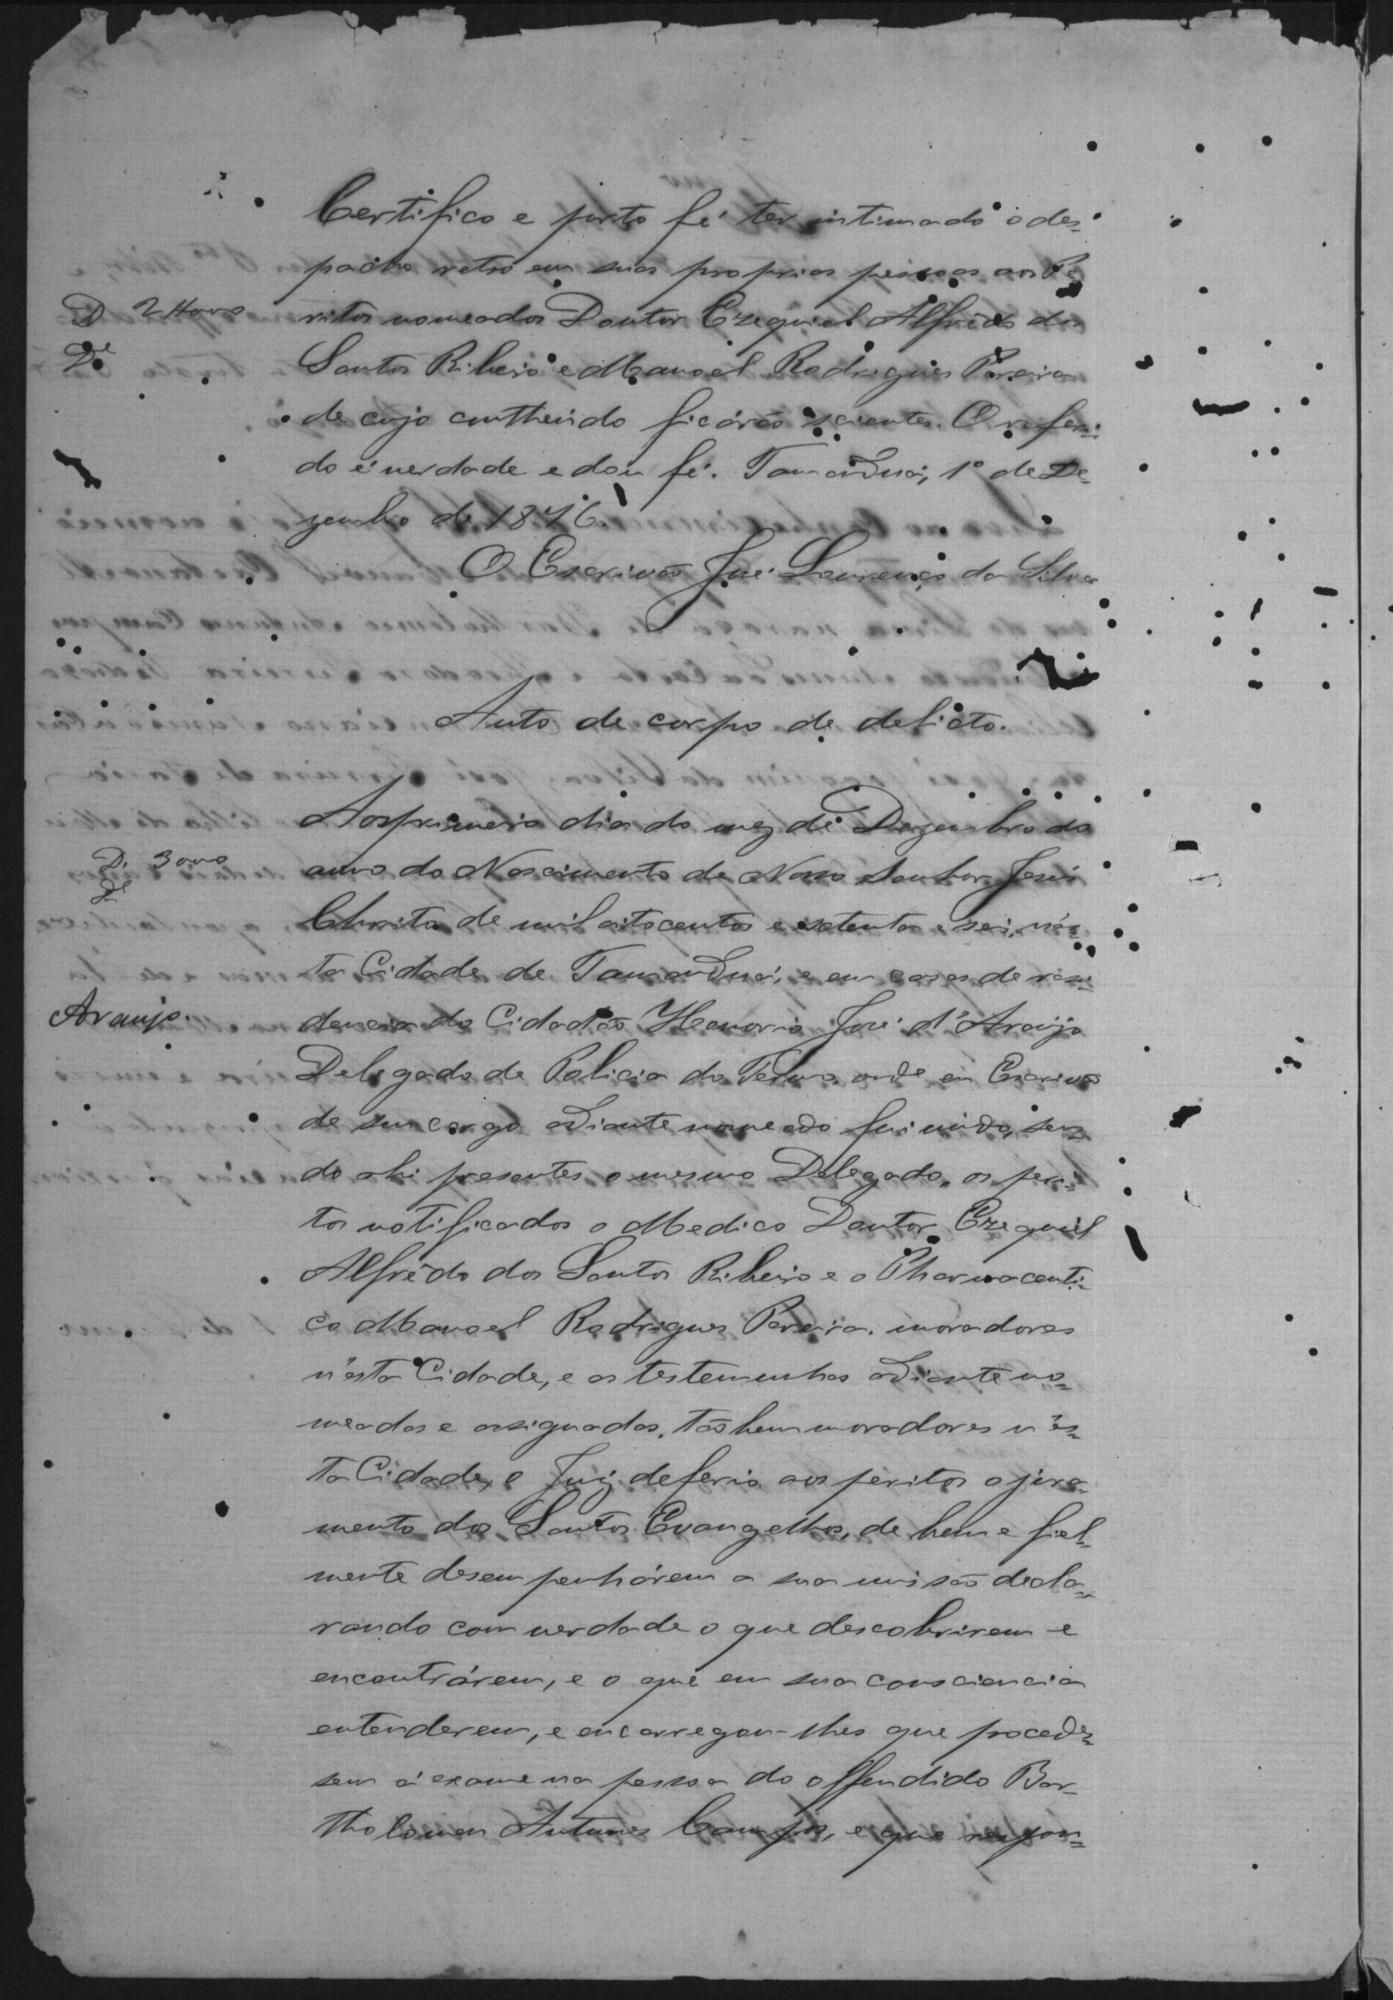 Certifico e porto fé ter intimado o des-
pacho retro em suas proprias pessoas aos Pe-
D 2 4000 ritos nomeados Doutor Ezequiel Alfrêdo dos
Dº Santos Ribeiro e Manoel Rodrigues Pereira
de cujo contheudo ficárão scientes. O referi-
do é verdade e dou fé. Tamanduá, 1º de De-
zembro de 1876.
O Escrivão José Lourenço da Silva
Auto de corpo de delicto.
Aos primeiro dia do mez de Dezembro do
D. 3000 anno do Nascimento de Nosso Senhor Jesus
Christo de mil oitocentos e setenta e seis, n'es-
ta Cidade de Tamanduá, e em casas de resi-
Araujo. dencia do Cidadão Honorio José d'Araujo
Delegado de Policia do Termo, onde eu Escrivão
de seu cargo adiante nomeado fui vindo, sen-
do ahi presentes o mesmo Delegado, os peri-
tos notificados o Medico Doutor Ezequiel
Alfrêdo dos Santos Ribeiro e o Pharmaceuti-
co Manoel Rodrigues Pereira. moradores
n'esta Cidade, e as testemunhas adiante no-
meadas e assignadas, tãobem moradores n'es-
ta Cidade, o Juiz deferio aos peritos o jura-
mento dos Santos Evangelhos, de bem e fiel-
mente desempenhárem a sua missão decla-
rando com verdade o que descobrirem e
encontrárem, e o que em sua consciencia
entenderem, e encarregou-lhes que procedes-
sem á exame na pessoa do offendido Bar-
tholomeu Antunes Campos, e que respon-